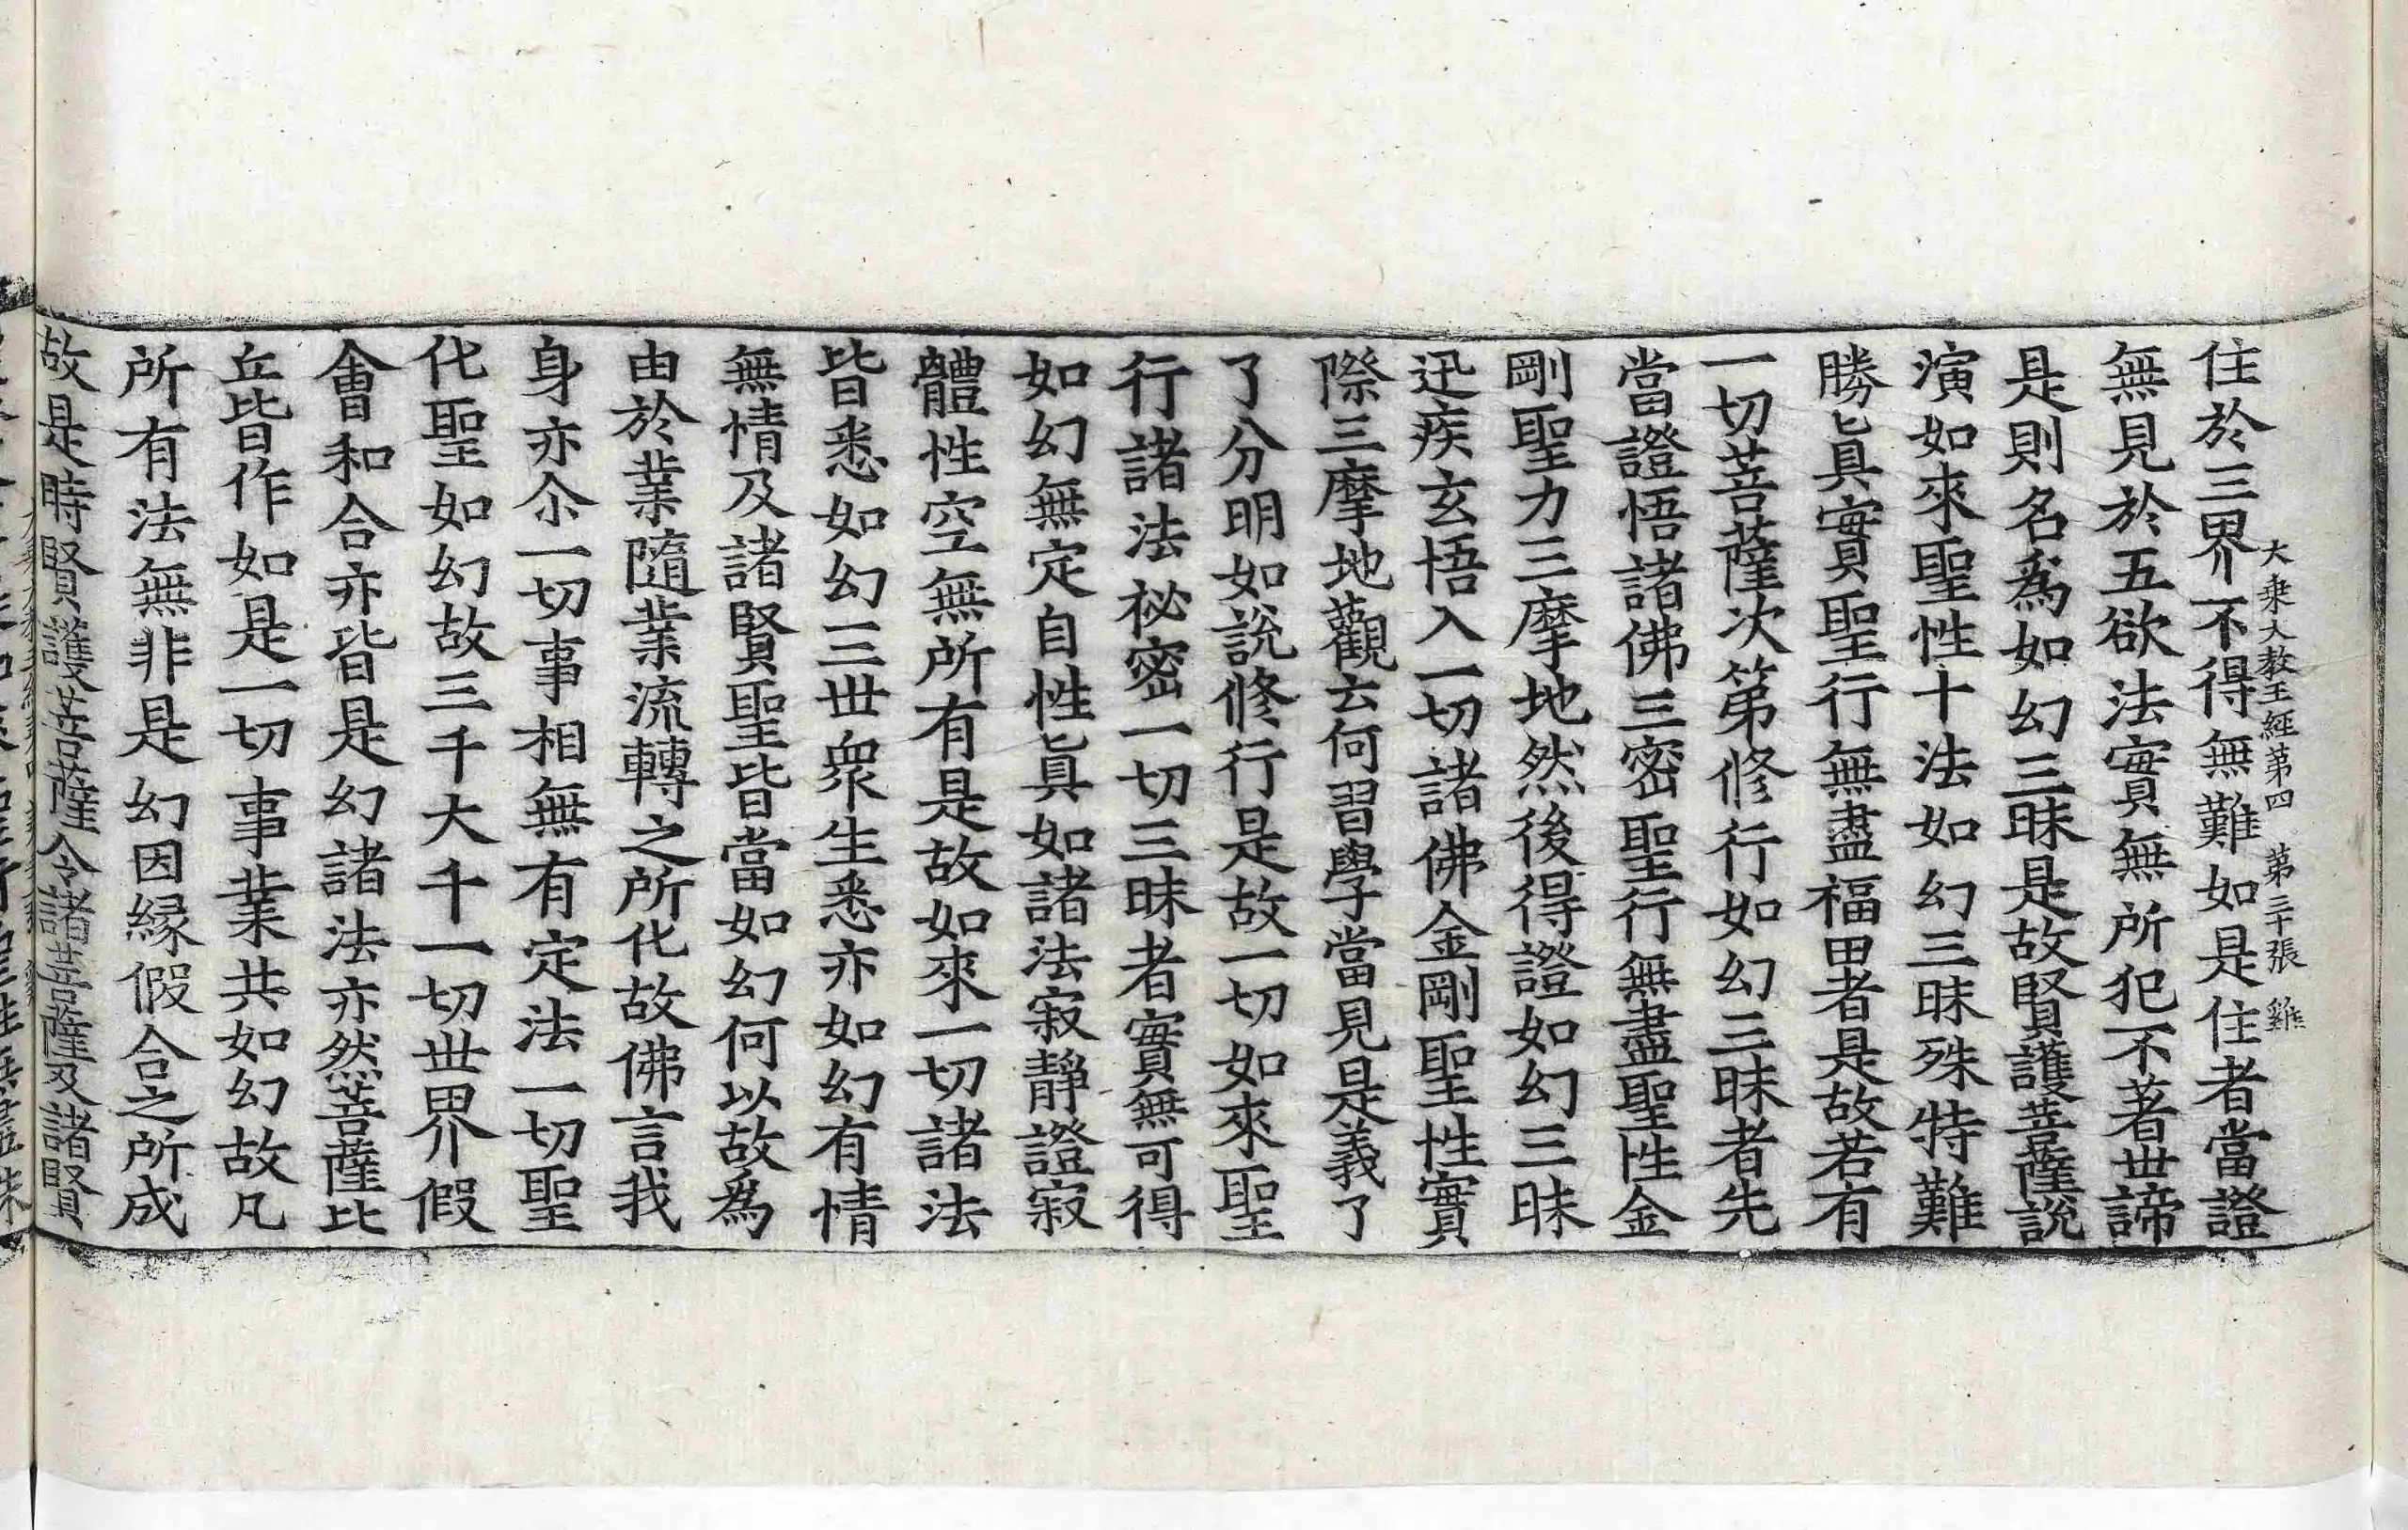 大乗大教王經第四 第三十張 雞
住於三界不得無難如是住者當證
無見於五欲法實無所犯不著世諦
是則名為如幻三昧是故賢護菩薩說
演如來聖性十法如幻三昧殊特難
勝㫖真實聖行無盡福田者是故若有
一切菩薩次第修行如幻三昧者先
當證悟諸佛三密聖行無盡聖性金
剛聖力三摩地然後得證如幻三昧
迅疾玄悟入一切諸佛金剛聖性實
際三摩地觀云何習學當見是義了
了分明如說修行是故一切如來聖
行諸法祕密一切三昧者實無可得
如幻無定自性真如諸法寂靜證寂
體性空無所有是故如來一切諸法
皆悉如幻三世衆生悉亦如幻有情
無情及諸賢聖皆當如幻何以故為
由於業隨業流轉之所化故佛言我
身亦尒一切事相無有定法一切聖
化聖如幻故三千大千一切世界假
會和合亦皆是幻諸法亦然菩薩比
丘皆作如是一切事業共如幻故凡
所有法無非是幻因緣假合之所成
故是時賢護菩薩令諸菩薩及諸賢